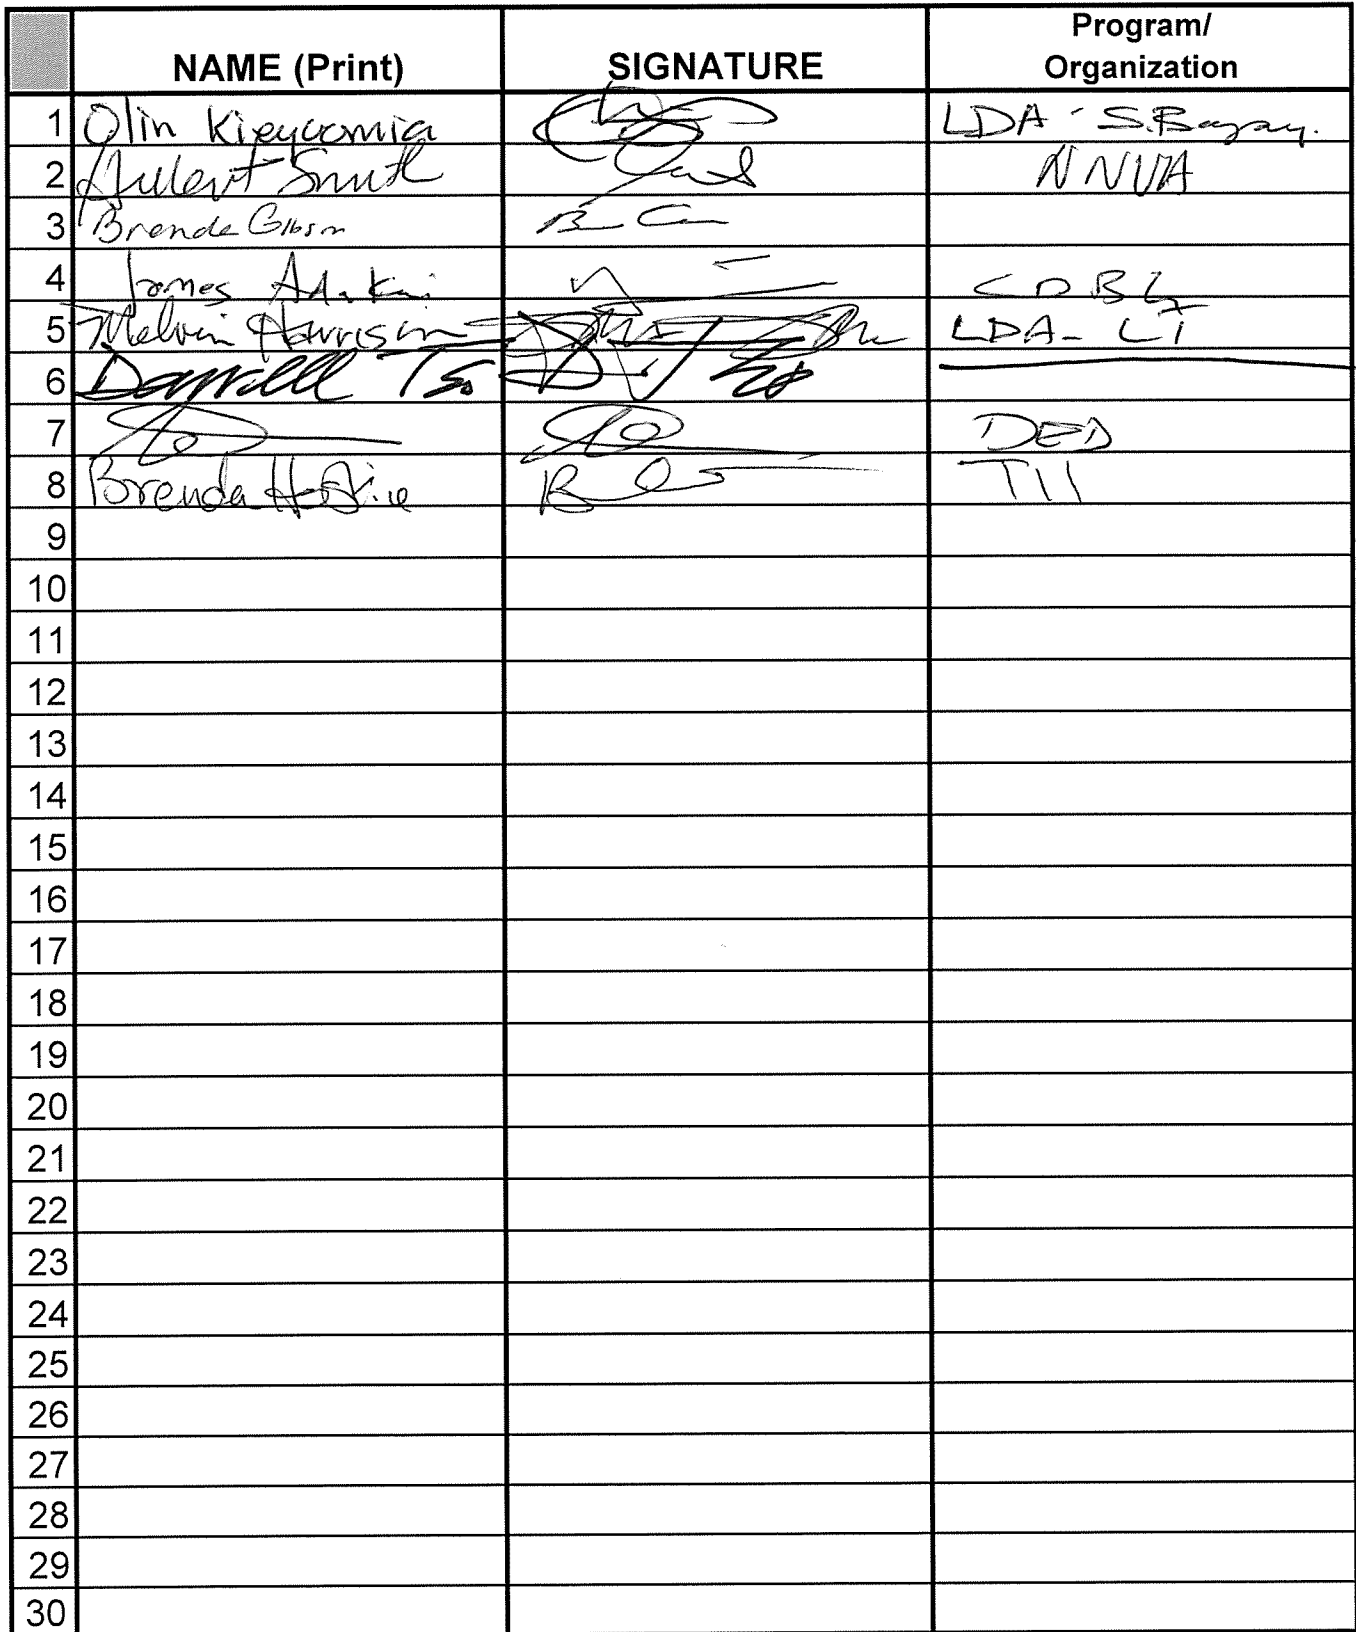 NAME (Print) SIGNATURE Program/
Organization
1 Olin Kieyoomia LDA - S.Begay.
2 Smith NNVA
3 Brenda Gibson
4 James Adakai CDBG
5 Melvin Harrison LDA - LT
6 Darrell Tso
7 DED
8 Brenda
9
10
11
12
13
14
15
16
17
18
19
20
21
22
23
24
25
26
27
28
29
30